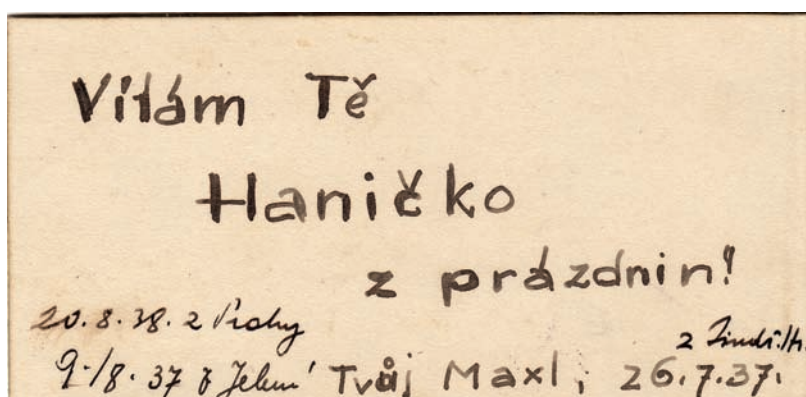 Vítám Tě
Haničko
z prázdnin!
20.8.38. z Prahy
z Jindř.H.
9./8. 37 z Jelení Tvůj Maxl, 26.7.37.